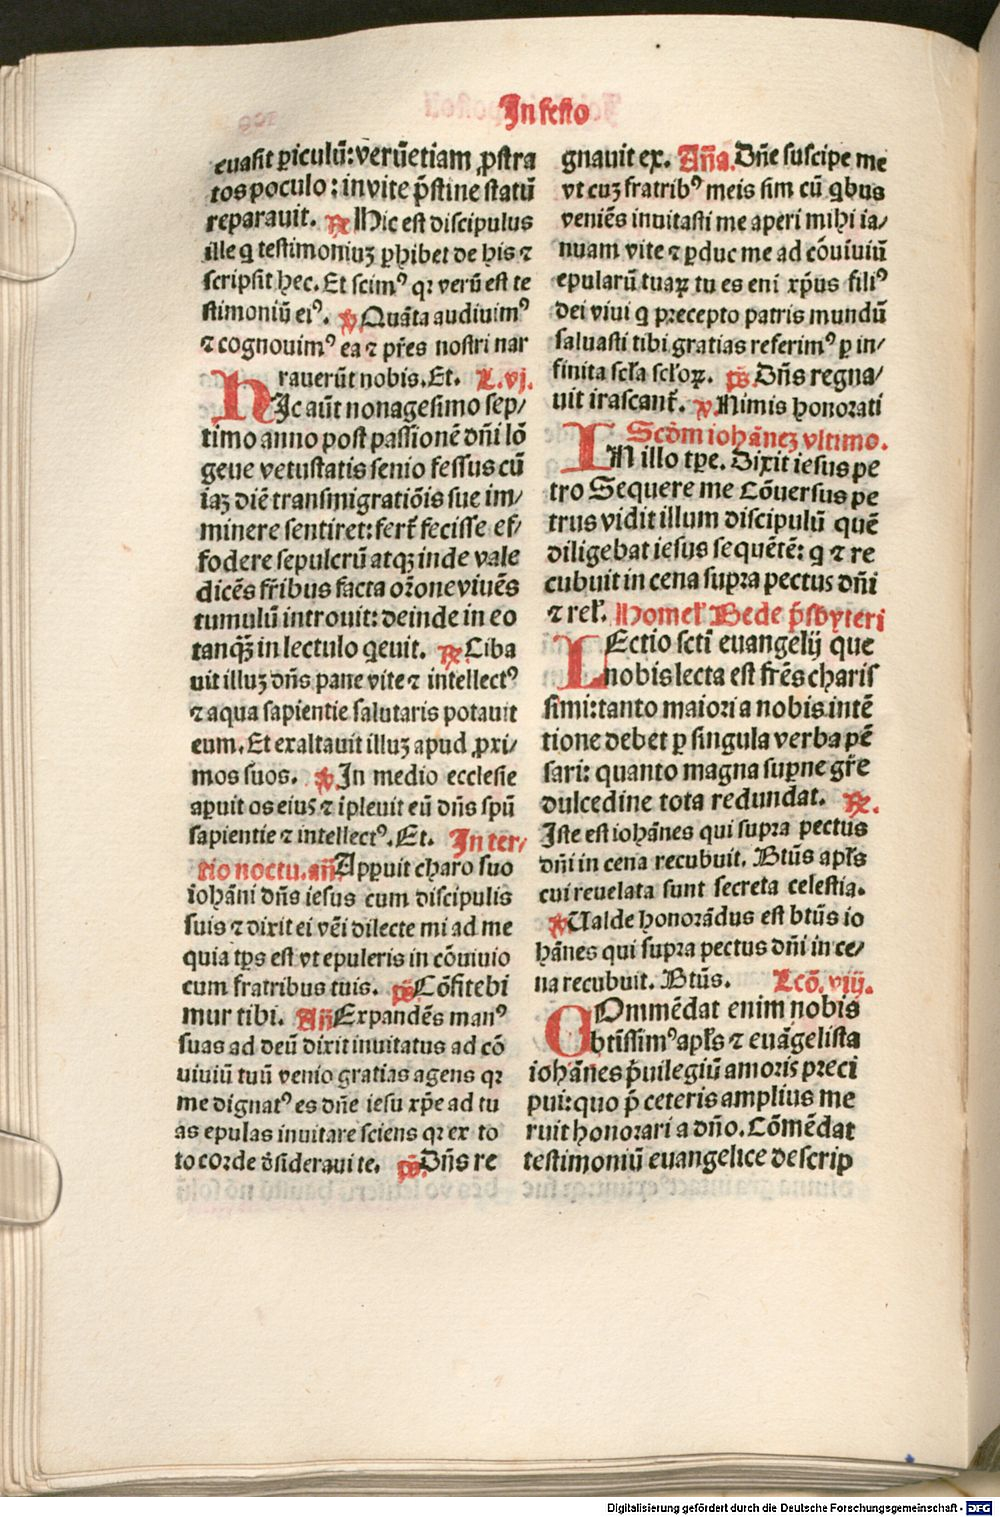 In festo
euasit ꝑiculū: verūetiam ꝓstra
tos poculo: in vite p̄stine statū
reparauit. ℟ Hic est discipulus
ille q̄ testimoniuꝫ ꝑhibet de his ⁊
scripsit hec. Et scimꝰ qꝛ verū est te
stimoniū eiꝰ. ℣ Quāta audiuimꝰ
⁊ cognouimꝰ ea ⁊ pr̄es nostri nar
rauerūt nobis. Et. L. vj.
HIc aūt nonagesimo sep⸗
timo anno post passionē dn̄i lō
geue vetustatis senio fessus cū
iāꝫ diē transmigratiōis sue im⸗
minere sentiret: fert̄ fecisse ef⸗
fodere sepulcrū atqꝫ inde vale
dicēs fr̄ibus facta or̄one viuēs
tumulū introuit: deinde in eo
tanqꝫ̄ in lectulo q̇euit. ℟ Ciba
uit illuꝫ dn̄s pane vite ⁊ intellectꝰ
⁊ aqua sapientie salutaris potauit
eum. Et exaltauit illuꝫ apud ꝓxi⸗
mos suos. ℣ In medio ecclesie
aꝑuit os eius ⁊ īpleuit eū dn̄s spū
sapientie ⁊ intellectꝰ. Et. In ter⸗
tio noctu. an̄. Apꝑuit charo suo
iohāni dn̄s iesus cum discipulis
suis ⁊ dixit ei vēi dilecte mi ad me
quia tp̄s est vt epuleris in cōuiuio
cum fratribus tuis. p̄s Cōfitebi
mur tibi. An̄ Expandēs manꝰ
suas ad deū dixit inuitatus ad cō
uiuiū tuū venio gratias agens qꝛ
me dignatꝰ es dn̄e iesu xp̄e ad tu
as epulas inuitare sciens qꝛ ex to
to corde d̄sideraui te. p̄s. Dn̄s re
gnauit ex. An̄a. Dn̄e suscipe me
vt cuꝫ fratribꝰ meis sim cū q̇bus
veniēs inuitasti me aperi mihi ia⸗
nuam vite ⁊ ꝑduc me ad cōuiuiū
epularū tuaꝝ tu es eni xp̄us filiꝰ
dei viui q̄ precepto patris mundū
saluasti tibi gratias referimꝰ ꝑ in⸗
finita scl̄a scl̄oꝝ. p̄s. Dn̄s regna⸗
uit irascant̄. ℣. Nimis honorati
Scd̄m iohāneꝫ vltimo.
IN illo tp̄e. Dixit iesus pe
tro Sequere me Cōuersus pe
trus vidit illum discipulū quē
diligebat iesus sequētē: q̄ ⁊ re
cubuit in cena supra pectus dn̄i
⁊ rel̄. Homel̄ Bede p̄sbyteri
LEctio sct̄i euangelij que
nobis lecta est fr̄es charis
simi: tanto maiori a nobis intē
tione debet ꝑ singula verba pē
sari: quanto magna suꝑne gr̄e
dulcedine tota redundat. ℟.
Iste est iohānes qui supra pectus
dn̄i in cena recubuit. Btūs apl̄s
cui reuelata sunt secreta celestia.
℣ Ualde honorādus est btūs io
hānes qui supra pectus dn̄i in ce⸗
na recubuit. Btūs. Lcō. viij.
COmmēdat enim nobis
btīssimꝰ apl̄s ⁊ euāgelista
iohānes p̄uilegiū amoris preci
pui: quo p̄ ceteris amplius me
ruit honorari a dn̄o. Cōmēdat
testimoniū euangelice descrip
Digitalisierung gefördert durch die Deutsche Forschungsgemeinschaft - DFG